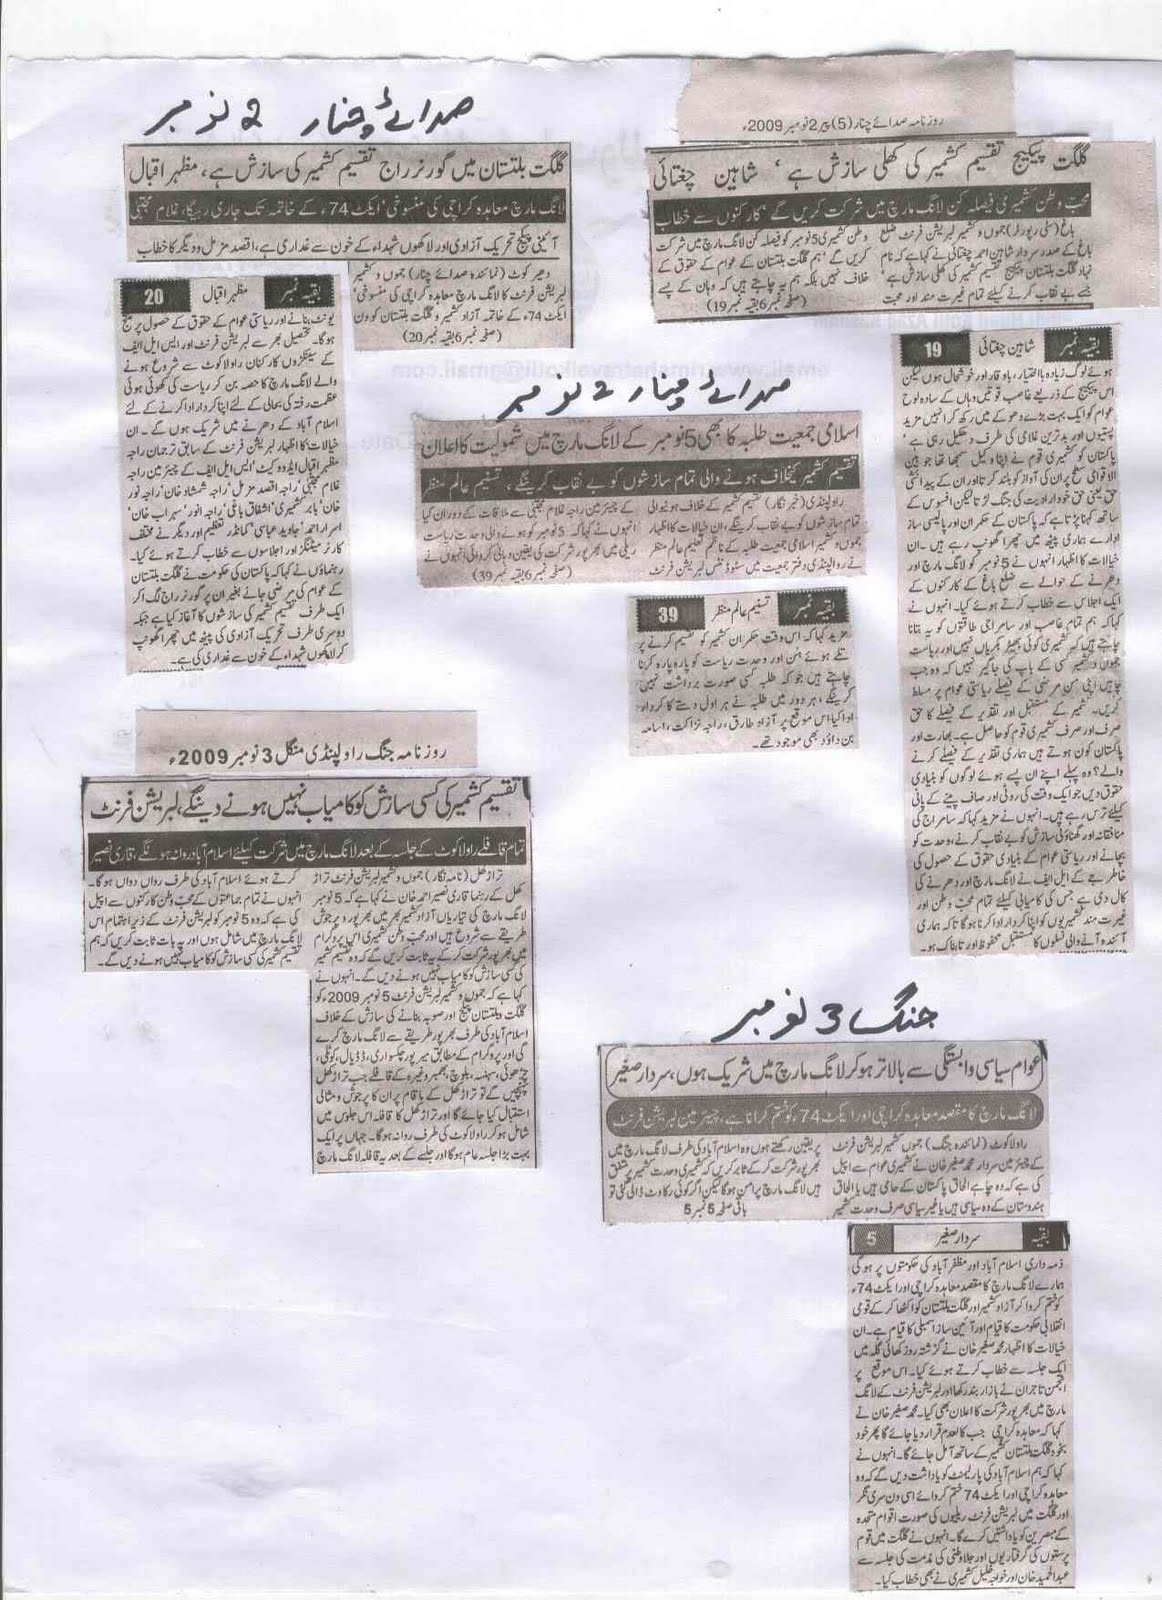 صدائے چنار 2 نومبر
روزنامہ صدائے چنار (5) پیر 2 نومبر 2009ء
گلگت بلتستان میں گورنر راج تقسیم کشمیر کی سازش ہے، مظہر اقبال
لانگ مارچ معاہدہ کراچی کی منسوخی' ایکٹ 74ء کے خاتمہ تک جاری رہیگا، غلام مجتبیٰ
آئینی پیکج تحریک آزادی اور لاکھوں شہداء کے خون سے غداری ہے، اقصد مزمل و دیگر کا خطاب
دھیر کوٹ (نمائندہ صدائے چنار) جموں و کشمیر
لبریشن فرنٹ کا لانگ مارچ معاہدہ کراچی کی منسوخی'
ایکٹ 74ء کے خاتمہ آزاد کشمیر و گلگت بلتستان کو ون
(صفحہ نمبر 6 بقیہ نمبر 20)
بقیہ نمبر مظہر اقبال 20
یونٹ بنانے اور ریاستی عوام کے حقوق کے حصول پر منتج
ہوگا۔ تحصیل بھر سے لبریشن فرنٹ اور ایس ایل ایف
کے سینکڑوں کارکنان راولاکوٹ سے شروع ہونے
والے لانگ مارچ کا حصہ بن کر ریاست کی کھوئی ہوئی
عظمت رفتہ کی بحالی کے لئے اپنا کردار ادا کرنے کے لئے
اسلام آباد کے دھرنے میں شریک ہوں گے۔ ان
خیالات کا اظہار لبریشن فرنٹ کے سابق ترجمان راجہ
مظہر اقبال ایڈووکیٹ' ایس ایل ایف کے چیئرمین راجہ
غلام مجتبیٰ' راجہ اقصد مزمل' راجہ شمشاد خان' راجہ نور
خان' بابر کشمیری' اشفاق باغی' راجہ انور' سہراب خان'
اسرار احمد' جاوید عباسی' کمانڈر تعظیم اور دیگر نے مختلف
کارنر میٹنگز اور اجلاسوں سے خطاب کرتے ہوئے کیا۔
رہنماؤں نے کہا کہ پاکستان کی حکومت نے گلگت بلتستان
کے عوام کی مرضی جانے بغیر ان پر گورنر راج لگا کر
ایک طرف تقسیم کشمیر کی سازشوں کا آغاز کیا ہے جبکہ
دوسری طرف تحریک آزادی کی پیٹھ میں چھرا گھونپ
کر لاکھوں شہداء کے خون سے غداری کی ہے۔
گلگت پیکیج تقسیم کشمیر کی کھلی سازش ہے' شاہین چغتائی
محب وطن کشمیری فیصلہ کن لانگ مارچ میں شرکت کریں گے' کارکنوں سے خطاب
باغ (سٹی رپورٹر) جموں و کشمیر لبریشن فرنٹ ضلع
باغ کے صدر سردار شاہین احمد چغتائی نے کہا ہے کہ نام
نہاد گلگت بلتستان پیکیج تقسیم کشمیر کی کھلی سازش ہے'
جسے بے نقاب کرنے کیلئے تمام غیرت مند اور محبت
وطن کشمیری 5 نومبر کو فیصلہ کن لانگ مارچ میں شرکت
کریں گے' ہم گلگت بلتستان کے عوام کے حقوق کے
خلاف نہیں بلکہ ہم یہ چاہتے ہیں کہ وہاں کے پسے
(صفحہ نمبر 6 بقیہ نمبر 19)
بقیہ نمبر شاہین چغتائی 19
ہوئے لوگ زیادہ بااختیار، باوقار اور خوشحال ہوں لیکن
اس پیکیج کے ذریعے غاصب قوتیں وہاں کے سادہ لوح
عوام کو ایک بہت بڑے دھوکے میں رکھ کر انہیں مزید
پستیوں اور بدترین غلامی کی طرف دھکیل رہی ہے'
پاکستان کو کشمیری قوم نے اپنا وکیل سمجھا تھا جو بین
الاقوامی سطح پر ان کی آواز کو بلند کرتا اور ان کے پیدائشی
حق یعنی حق خودارادیت کی جنگ لڑتا لیکن افسوس کے
ساتھ کہنا پڑتا ہے کہ پاکستان کے حکمران اور پالیسی ساز
ادارے ہماری پیٹھ میں چھرا گھونپ رہے ہیں۔ ان
خیالات کا اظہار انہوں نے 5 نومبر کو لانگ مارچ اور
دھرنے کے حوالے سے ضلع باغ کے کارکنوں کے
ایک اجلاس سے خطاب کرتے ہوئے کیا۔ انہوں نے
کہا کہ ہم تمام غاصب اور سامراجی طاقتوں کو یہ بتانا
چاہتے ہیں کہ کشمیری کوئی بھیڑ بکریاں نہیں اور ریاست
جموں و کشمیر کسی کے باپ کی جاگیر نہیں کہ وہ جب
چاہیں اپنی من مرضی کے فیصلے ریاستی عوام پر مسلط
کریں۔ کشمیر کے مستقبل اور تقدیر کے فیصلے کا حق
صرف اور صرف کشمیری قوم کو حاصل ہے۔ بھارت اور
پاکستان کون ہوتے ہیں ہماری تقدیر کے فیصلے کرنے
والے؟ وہ پہلے اپنے ان پسے ہوئے لوگوں کو بنیادی
حقوق دیں جو ایک وقت کی روٹی اور صاف پینے کے پانی
کیلئے ترس رہے ہیں۔ انہوں نے مزید کہا کہ سامراج کی
منافقانہ اور گھناؤنی سازش کو بے نقاب کرنے، وحدت کو
بچانے اور ریاستی عوام کے بنیادی حقوق کے حصول کی
خاطر جے کے ایل ایف نے لانگ مارچ اور دھرنے کی
کال دی ہے جس کی کامیابی کیلئے تمام محب وطن اور
غیرت مند کشمیریوں کو اپنا کردار ادا کرنا ہوگا تاکہ ہماری
آئندہ آنے والی نسلوں کا مستقبل محفوظ اور تابناک ہو۔
صدائے چنار 2 نومبر
اسلامی جمعیت طلبہ کا بھی 5 نومبر کے لانگ مارچ میں شمولیت کا اعلان
تقسیم کشمیر کیخلاف ہونے والی تمام سازشوں کو بے نقاب کرینگے، تسنیم عالم منظر
راولپنڈی (خبر نگار) تقسیم کشمیر کے خلاف ہونیوالی
تمام سازشوں کو بے نقاب کرینگے، ان خیالات کا اظہار
جموں و کشمیر اسلامی جمعیت طلبہ کے ناظم تسنیم عالم منظر
نے راولپنڈی دفتر جمعیت میں سٹوڈنٹس لبریشن فرنٹ
کے چیئرمین راجہ غلام مجتبیٰ سے ملاقات کے دوران کیا
انہوں نے کہا کہ 5 نومبر کو ہونے والی وحدت ریاست
ریلی میں بھرپور شرکت کی یقین دہانی کروائی انہوں نے
(صفحہ نمبر 6 بقیہ نمبر 39)
بقیہ نمبر تسنیم عالم منظر 39
مزید کہا کہ اس وقت حکمران کشمیر کو تقسیم کرنے پر
تلے ہوئے ہیں اور وحدت ریاست کو پارہ پارہ کرنا
چاہتے ہیں جو کہ طلبہ کسی صورت برداشت نہیں
کرینگے، ہر دور میں طلبہ نے ہر اول دستے کا کردار
ادا کیا اس موقع پر آزاد طارق، راجہ نزاکت، اسامہ
بن داؤد بھی موجود تھے۔
روزنامہ جنگ راولپنڈی منگل 3 نومبر 2009ء
تقسیم کشمیر کی کسی سازش کو کامیاب نہیں ہونے دینگے، لبریشن فرنٹ
تمام قافلے راولاکوٹ کے جلسہ کے بعد لانگ مارچ میں شرکت کیلئے اسلام آباد روانہ ہونگے، قاری نصیر
تراڑکھل (نامہ نگار) جموں و کشمیر لبریشن فرنٹ تراڑ
کھل کے رہنما قاری نصیر احمد خان نے کہا ہے کہ 5 نومبر
لانگ مارچ کی تیاریاں آزاد کشمیر بھر میں بھرپور و پرجوش
طریقے سے شروع ہیں اور محب وطن کشمیری اس پروگرام
میں بھرپور شرکت کر کے یہ ثابت کریں گے کہ وہ تقسیم کشمیر
کی کسی سازش کو کامیاب نہیں ہونے دیں گے۔ انہوں نے
کہا ہے کہ جموں و کشمیر لبریشن فرنٹ 5 نومبر 2009ء کو
گلگت و بلتستان پیکج اور صوبہ بنانے کی سازش کے خلاف
اسلام آباد کی طرف بھرپور طریقے سے لانگ مارچ کرے
گی اور پروگرام کے مطابق میرپور چکسواری، ڈڈیال، کوٹلی،
چڑھوئی، سہنسہ، بلوچ، بھمبر وغیرہ کے قافلے جب تراڑکھل
پہنچیں گے تو تراڑکھل کے باقام پر ان کا پرجوش و مثالی
استقبال کیا جائے گا اور تراڑکھل کا قافلہ اس جلوس میں
شامل ہو کر راولاکوٹ کی طرف روانہ ہوگا۔ جہاں پر ایک
بہت بڑا جلسہ عام ہوگا اور جلسے کے بعد یہ قافلہ لانگ مارچ
کرتے ہوئے اسلام آباد کی طرف رواں دواں ہوگا۔
انہوں نے تمام جماعتوں کے محب وطن کارکنوں سے اپیل
کی ہے کہ وہ 5 نومبر کو لبریشن فرنٹ کے زیر اہتمام اس
لانگ مارچ میں شامل ہوں اور یہ بات ثابت کریں کہ ہم
تقسیم کشمیر کی کسی سازش کو کامیاب نہیں ہونے دیں گے۔
جنگ 3 نومبر
عوام سیاسی وابستگی سے بالاتر ہو کر لانگ مارچ میں شریک ہوں، سردار صغیر
لانگ مارچ کا مقصد معاہدہ کراچی اور ایکٹ 74ء کو ختم کرانا ہے، چیئرمین لبریشن فرنٹ
راولاکوٹ (نمائندہ جنگ) جموں کشمیر لبریشن فرنٹ
کے چیئرمین سردار محمد صغیر خان نے کشمیری عوام سے اپیل
کی ہے کہ وہ چاہے الحاق پاکستان کے حامی ہیں یا الحاق
ہندوستان کے وہ سیاسی ہیں یا غیر سیاسی صرف وحدت کشمیر
پر یقین رکھتے ہوں وہ اسلام آباد کی طرف لانگ مارچ میں
بھرپور شرکت کر کے ثابت کریں کہ کشمیری وحدت کشمیر پر متفق
ہیں لانگ مارچ پرامن ہوگا لیکن اگر کوئی رکاوٹ ڈالی گئی تو
باقی صفحہ 5 نمبر 5
بقیہ سردار صغیر 5
ذمہ داری اسلام آباد اور مظفر آباد کی حکومتوں پر ہوگی
ہمارے لانگ مارچ کا مقصد معاہدہ کراچی اور ایکٹ 74ء
کو ختم کروا کر آزاد کشمیر اور گلگت بلتستان کو اکٹھا کر کے قومی
انقلابی حکومت کا قیام اور آئین ساز اسمبلی کا قیام ہے۔ ان
خیالات کا اظہار محمد صغیر خان نے گزشتہ روز کھائی گلہ میں
ایک جلسہ سے خطاب کرتے ہوئے کیا۔ اس موقع پر
انجمن تاجران نے بازار بند رکھا اور لبریشن فرنٹ کے لانگ
مارچ میں بھرپور شرکت کا اعلان بھی کیا۔ محمد صغیر خان نے
کہا کہ معاہدہ کراچی جب کالعدم قرار دیا جائے گا پھر خود
بخود گلگت بلتستان کشمیر کے ساتھ آمل جائے گا۔ انہوں نے
کہا کہ ہم اسلام آباد کی پارلیمنٹ کو یادداشت دیں گے کہ وہ
معاہدہ کراچی اور ایکٹ 74 ختم کروائے اسی دن سری نگر
اور گلگت میں لبریشن فرنٹ ریلیوں کی صورت اقوام متحدہ
کے مبصرین کو یادداشتیں کرے گا۔ انہوں نے گلگت میں قوم
پرستوں کی گرفتاریوں اور جلاوطنی کی مذمت کی جلسہ سے
عبدالحمید خان اور خواجہ خلیل کشمیری نے بھی خطاب کیا۔